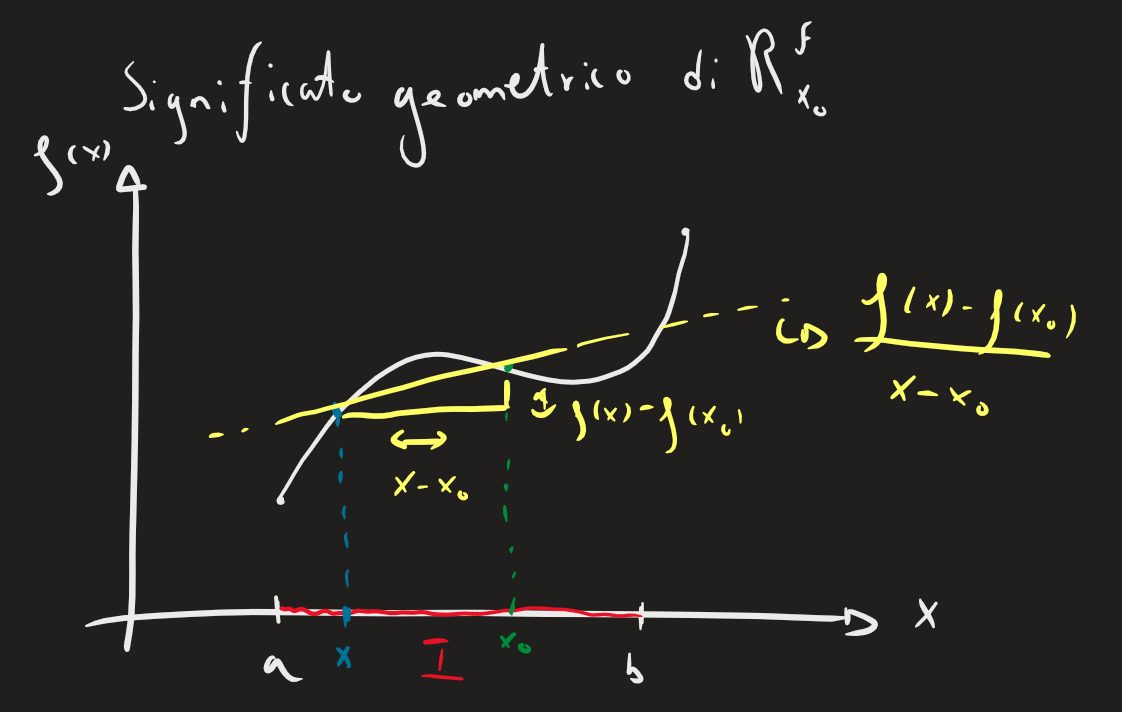 Significato geometrico di R^f_{x₀}
f(x)
f(x) - f(x₀)
x - x₀
f(x) - f(x₀)
x - x₀
x
a x I x₀ b